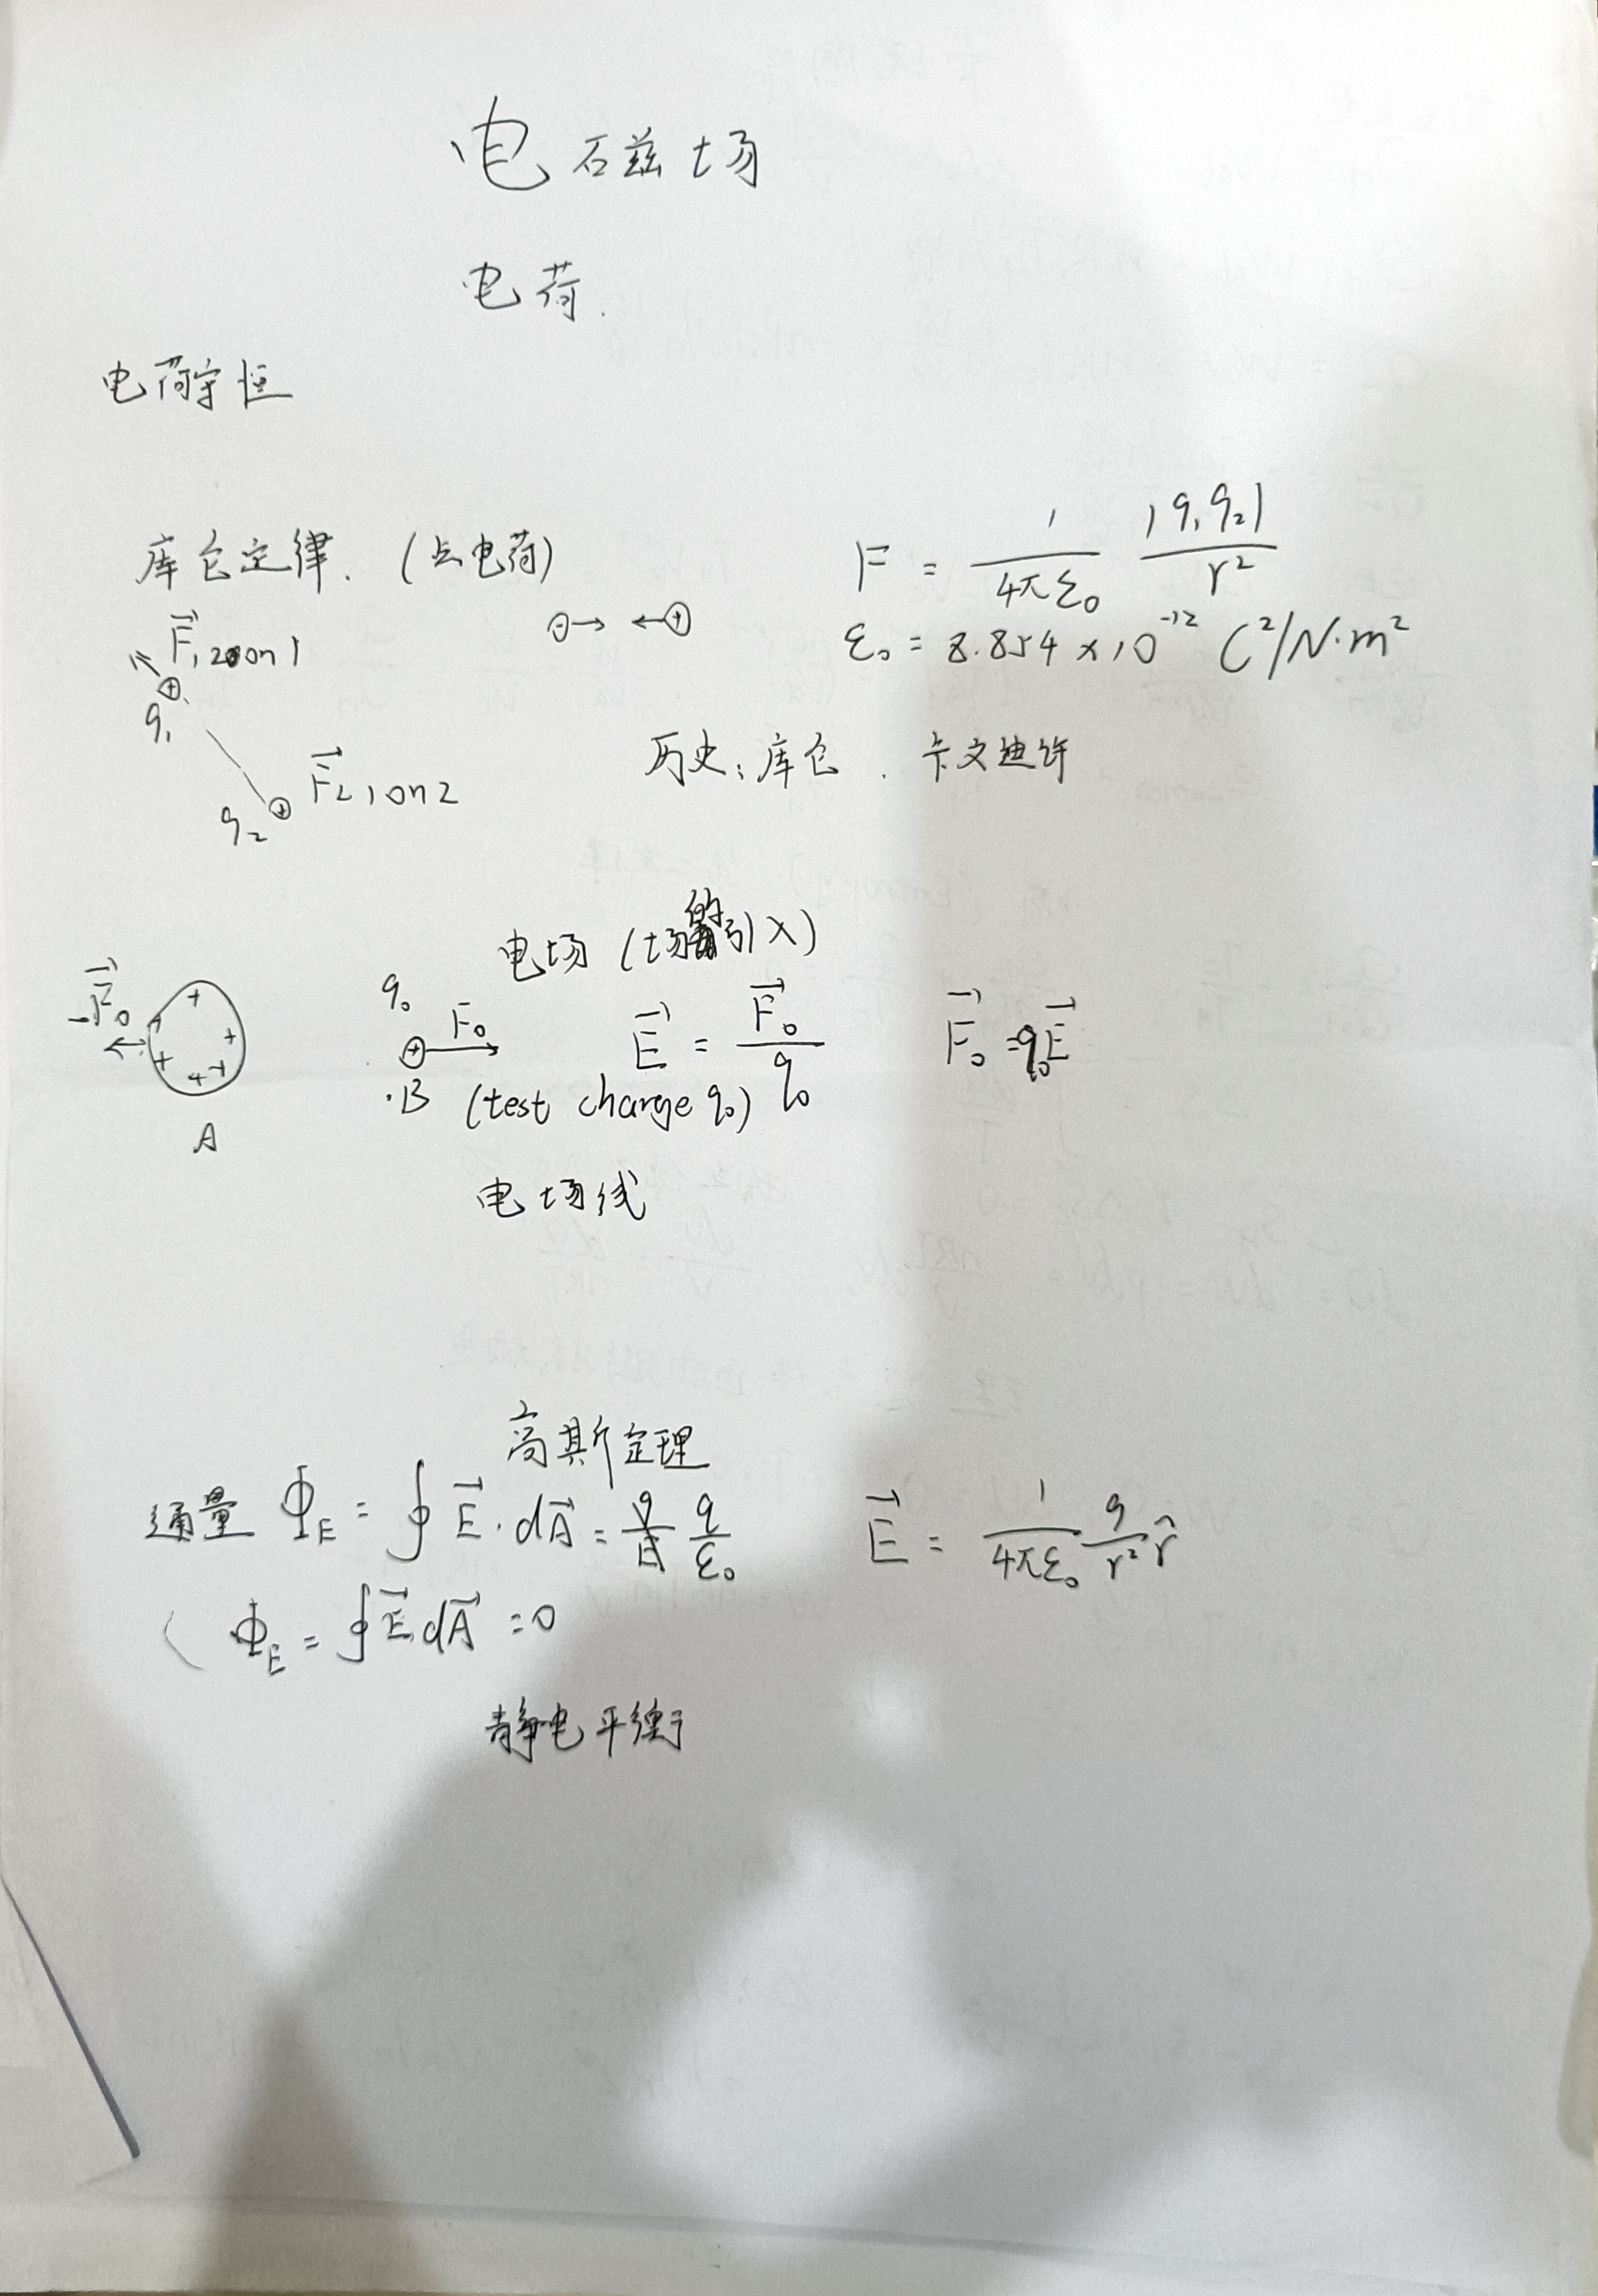 电磁场
电荷.
电荷守恒
库仑定律. (点电荷)
F = 1/4πε₀ |q₁q₂|/r²
ε₀ = 8.854 × 10⁻¹² C²/N·m²
F⃗₁ 2 on 1
q₁
F⃗₂ 1 on 2
q₂
历史: 库仑. 卡文迪许
电场 (场的引入)
-F⃗₀
A
q₀
F⃗₀
·B (test charge q₀)
E⃗ = F⃗₀/q₀
F⃗₀ = q₀E⃗
电场线
高斯定理
通量 Φ_E = ∮ E⃗ · dA⃗ = q/ε₀
E⃗ = 1/4πε₀ q/r² r̂
( Φ_E = ∮ E⃗ dA⃗ = 0
静电平衡